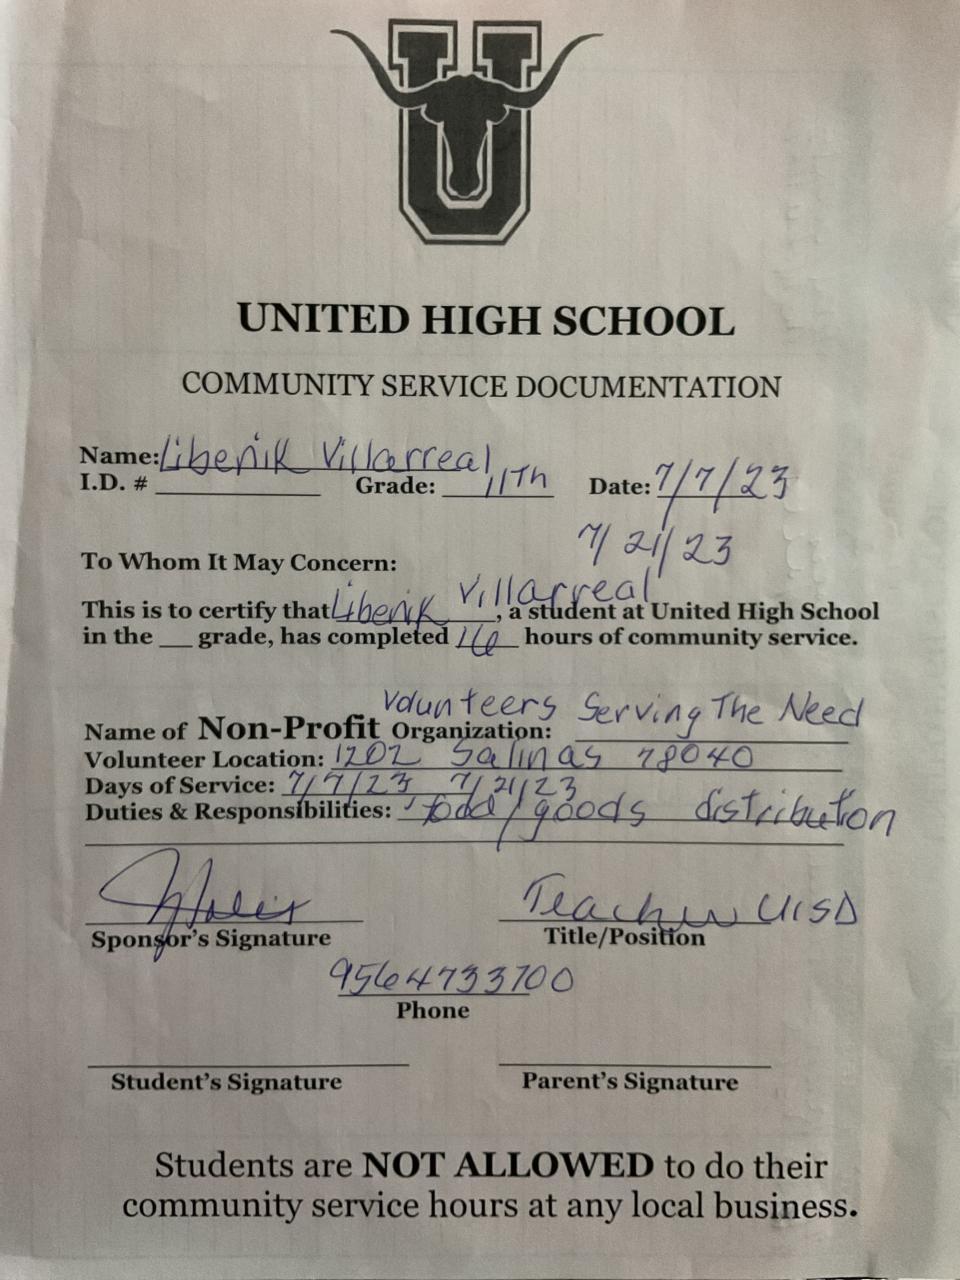 U
UNITED HIGH SCHOOL
COMMUNITY SERVICE DOCUMENTATION
Name: Libenik Villarreal
I.D. # Grade: 11Th Date: 7/7/23
7/21/23
To Whom It May Concern:
This is to certify that Libenik Villarreal, a student at United High School
in the ___ grade, has completed 16 hours of community service.
Name of Non-Profit Organization: Volunteers Serving The Need
Volunteer Location: 1202 Salinas 78040
Days of Service: 7/7/23 7/21/23
Duties & Responsibilities: food/goods distribution
Teacher UISD
Sponsor's Signature Title/Position
9564733700
Phone
Student's Signature Parent's Signature
Students are NOT ALLOWED to do their
community service hours at any local business.